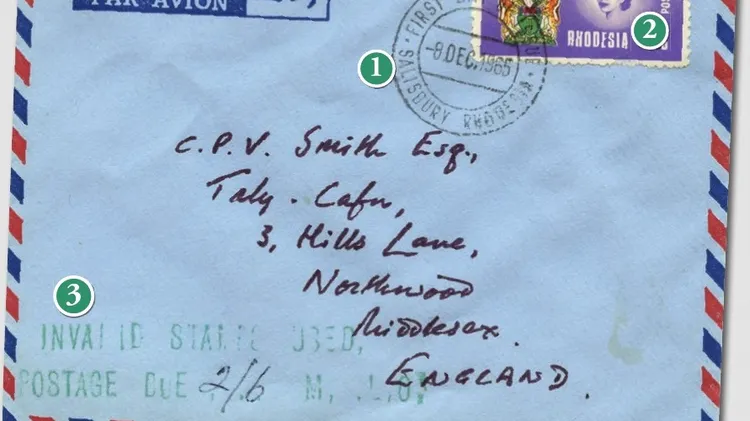 PAR AVION
FIRST
8 DEC. 1965
SALISBURY RHODESIA
RHODESIA
1
2
3
C.P.V. Smith Esq.,
3, Hills Lane,
Northwood
Middlesex.
ENGLAND.
INVALID STAMP USED,
POSTAGE DUE 2/6